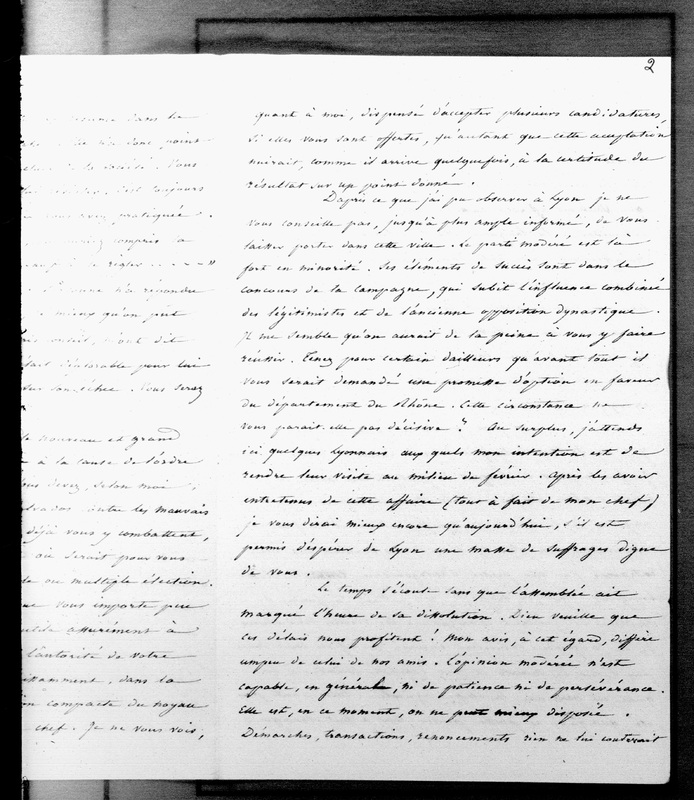 2
dans le
point
Vous
toujours
pratiquée.
compris la
régler - - - - »
répondre
mieux qu'on peut
dit
déplorable pour lui
Vous serez
nouveau et grand
à la cause de l'ordre
devez, selon moi,
entre les mauvais
déjà vous y combattent,
où serait pour vous
ou multiple élection.
vous importe peu
assurément à
l'autorité de votre
dans la
compacte du noyau
chef. Je ne vous vois,
quant à moi, dispensé d'accepter plusieurs candidatures,
si elles vous sont offertes, qu'autant que cette acceptation
nuirait, comme il arrive quelquefois, à la certitude du
résultat sur un point donné.
D'après ce que j'ai pu observer à Lyon je ne
vous conseille pas, jusqu'à plus ample informé, de vous
laisser porter dans cette ville. Le parti modéré est là
fort en minorité. Ses éléments de succès sont dans le
concours de la campagne, qui subit l'influence combinée
des légitimistes et de l'ancienne opposition dynastique.
Il me semble qu'on aurait de la peine à vous y faire
réussir. Tenez pour certain d'ailleurs qu'avant tout il
vous serait demandé une promesse d'option en faveur
du département du Rhône. Cette circonstance ne
vous parait-elle pas décisive ? Au surplus, j'attends
ici quelques Lyonnais aux quels mon intention est de
rendre leur visite au milieu de février. Après les avoir
entretenus de cette affaire (tout à fait de mon chef)
je vous dirai mieux encore qu'aujourd'hui, s'il est
permis d'espérer de Lyon une masse de suffrages digne
de vous.
Le temps s'écoule sans que l'assemblée ait
marqué l'heure de sa dissolution. Dieu veuille que
ces délais nous profitent ! Mon avis, à cet égard, diffère
un peu de celui de nos amis. L'opinion modérée n'est
capable, en général, ni de patience ni de persévérance.
Elle est, en ce moment, on ne peut mieux disposée.
Démarches, transactions, renoncements rien ne lui coûterait